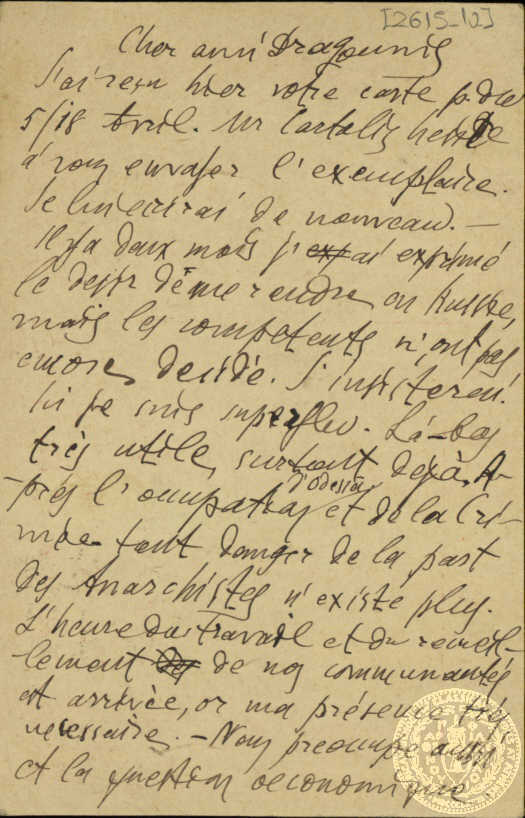 [2615-10]
Cher ami Dragoumis
J'ai reçu hier votre carte p. du
5/18 Avril. Mr Cartalis
à vous envoyer l'exemplaire.
Je lui écrirai de nouveau. —
Il y a deux mois j' ai exprimé
le désir de me rendre en Russie,
mais les compétents n'ont pas
encore décidé. J'insisterai.
Ici je suis superflu. Là-bas
très utile, surtout déjà. A-
-près l'occupation d'Odessa et de la Cri-
mée tout danger de la part
des Anarchistes n'existe plus.
L'heure du travail et du recueil-
lement de nos communautés
est arrivée, or ma présence très
nécessaire. — Nous préoccupe aussi
et la question oeconomique.